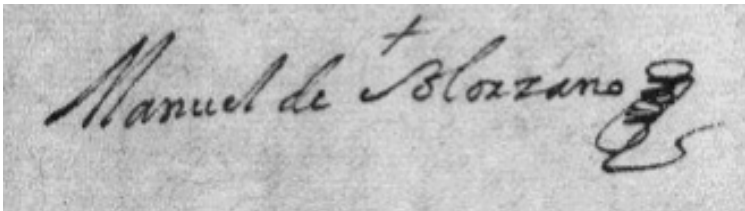 Manuel de Solorzano